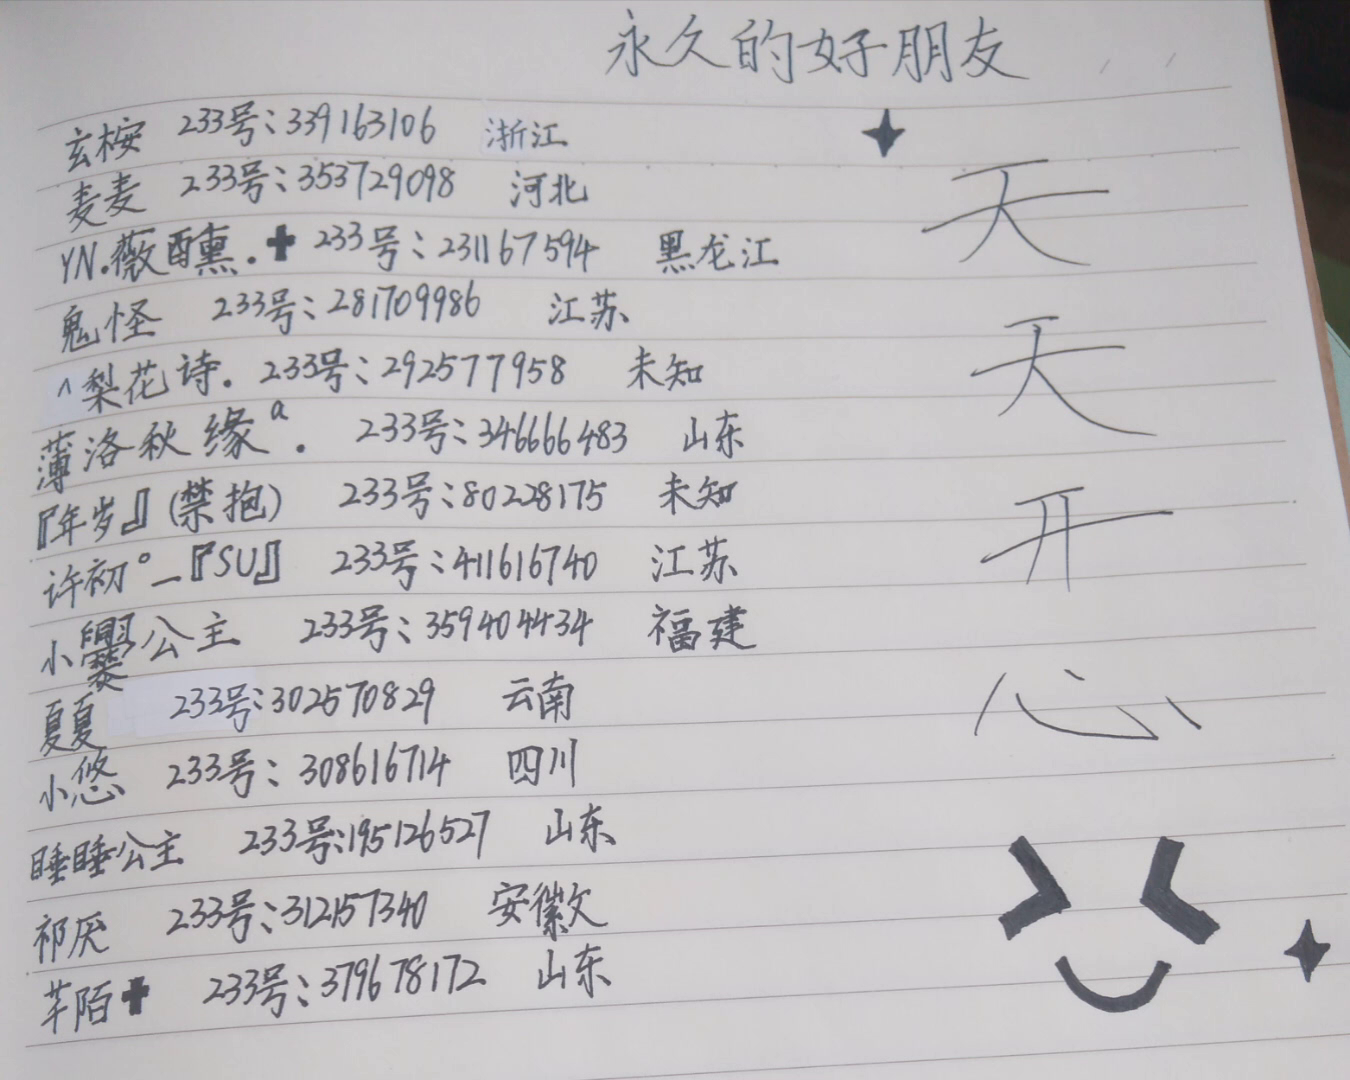 永久的好朋友
玄桉 233号:339163106 浙江
麦麦 233号:353729098 河北
YN.薇醺.✚ 233号:231167594 黑龙江
鬼怪 233号:281709986 江苏
^梨花诗. 233号:292577958 未知
薄洛秋缘ª. 233号:346666483 山东
『年岁』(禁抱) 233号:80228175 未知
许初°_『SU』 233号:411616740 江苏
小公主 233号:359404434 福建
夏夏 233号:302570829 云南
小悠 233号:308616714 四川
睡睡公主 233号:195126527 山东
祁厌 233号:312157340 安徽
芊陌✚ 233号:379678172 山东
天
天
开
心